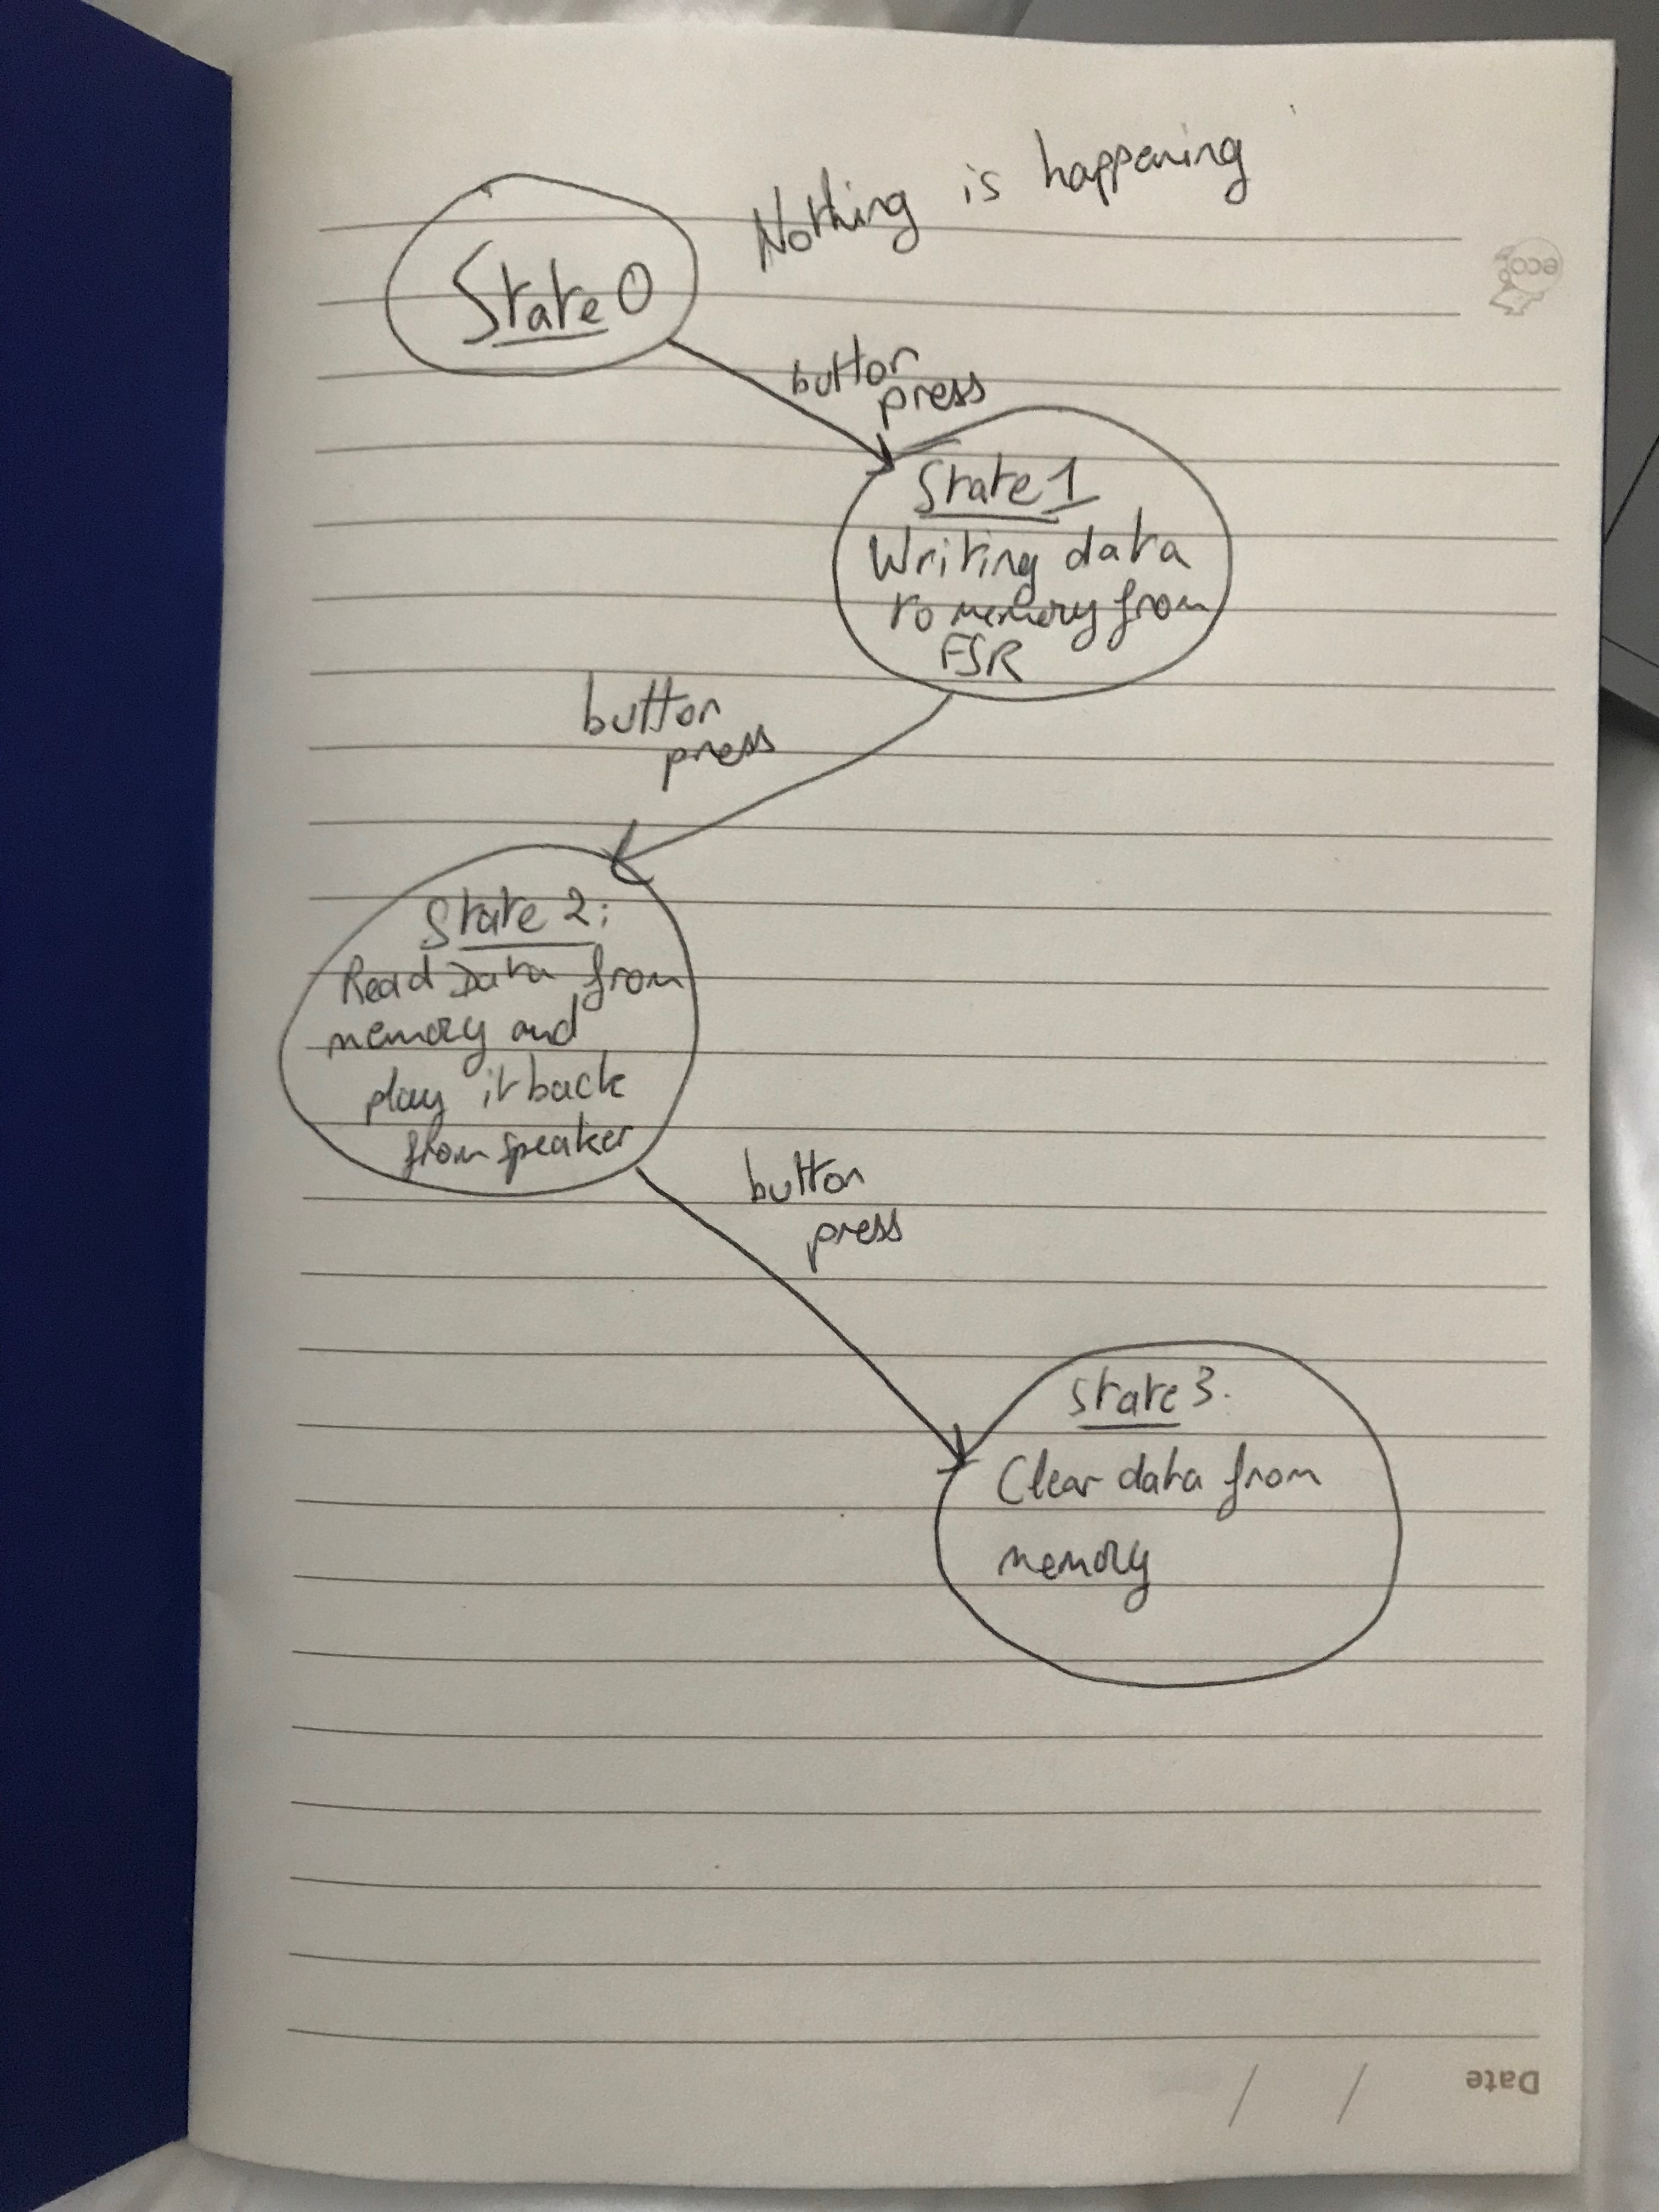 Nothing is happening
eco
State 0
button
press
State 1
Writing data
to memory from
FSR
button
press
State 2:
Read Data from
memory and
play it back
from speaker
button
press
State 3.
Clear data from
memory
Date / /